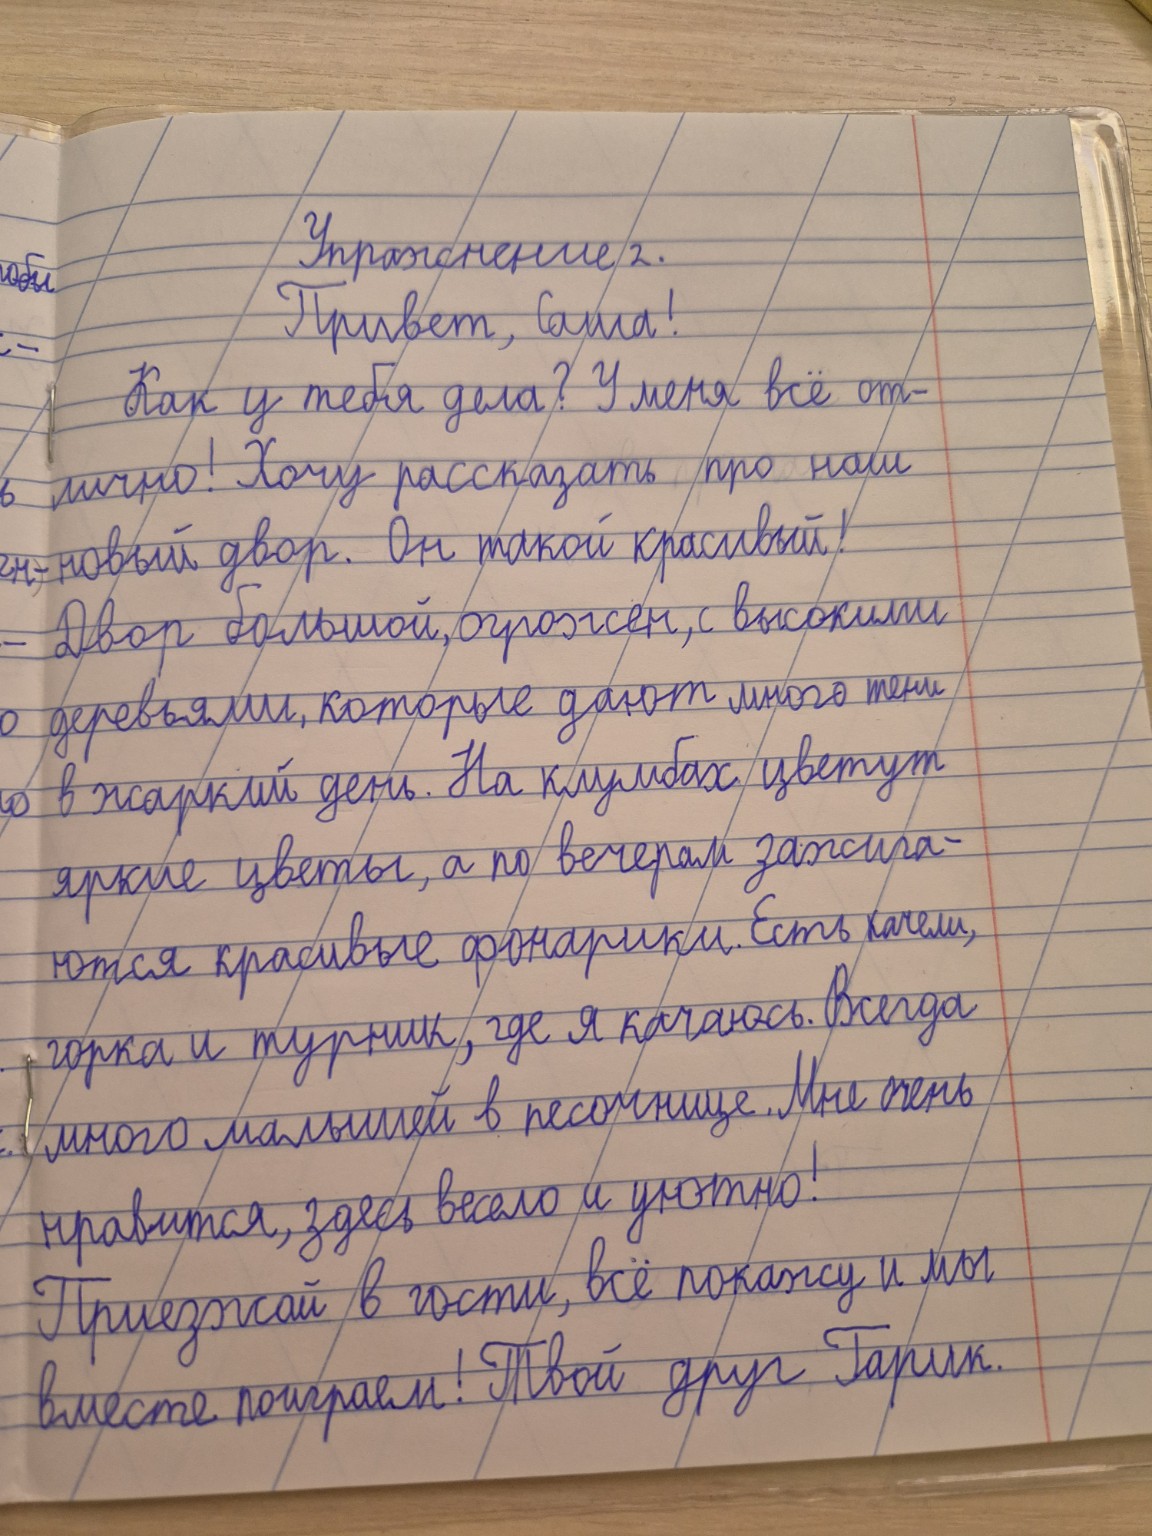 Упражнение 2.
Привет, Саша!
Как у тебя дела? У меня всё от-
лично! Хочу рассказать про наш
новый двор. Он такой красивый!
Двор большой, огрожен, с высокими
деревьями, которые дают много тени
в жаркий день. На клумбах цветут
яркие цветы, а по вечерам зажига-
ются красивые фонарики. Есть качели,
горка и турник, где я качаюсь. Всегда
много малышей в песочнице. Мне очень
нравится, здесь весело и уютно!
Приезжай в гости, всё покажу и мы
вместе поиграем! Твой друг Гарик.